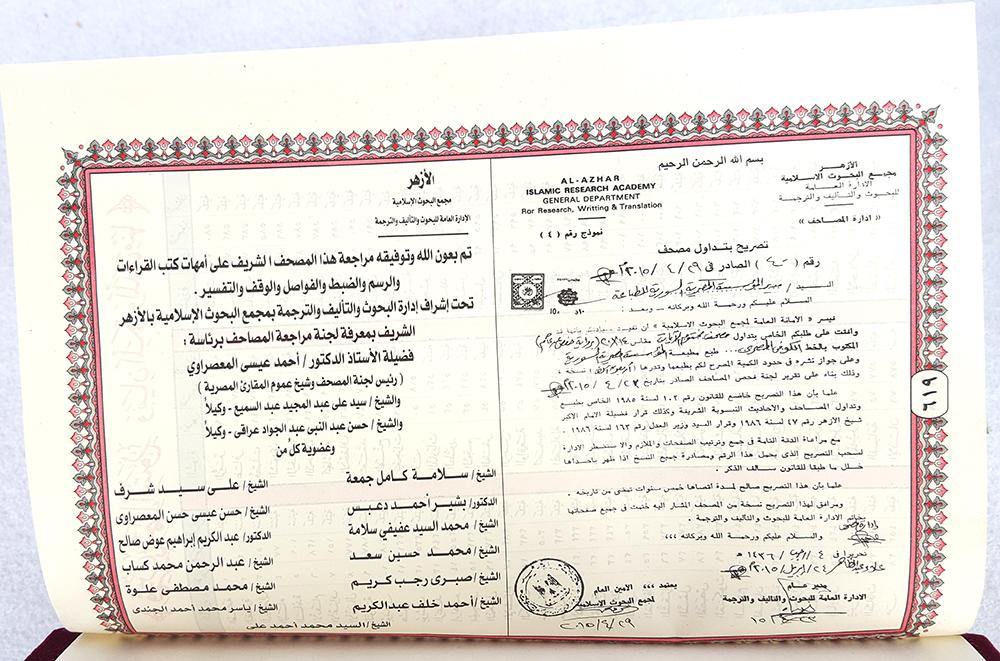 الأزهر
مجمع البحوث الإسلامية
الادارة العامة
للبحوث والتأليف والترجمة
« ادارة المصاحف »
بسم الله الرحمن الرحيم
AL-AZHAR
ISLAMIC RESEARCH ACADEMY
GENERAL DEPARTMENT
Ror Research, Writting & Translation
نموذج رقم ( ٤ )
تصريح بتداول مصحف
رقم ( ٤٠ ) الصادر فى ٢٩ / ٤ / ٢٠١٥
السيد /
السلام عليكم ورحمة الله وبركاته ــ وبعد :
« الأمانة العامة لمجمع البحوث الاسلامية » ان تفيد
وافقت على طلبكم الخاص بتداول مصحف
المكتوب بالخط طبع بمطبعة
وعلى جواز نشره فى حدود الكمية المصرح لكم بطبعها وقدرها نسخة ،
وذلك بناء على تقرير لجنة فحص المصاحف الصادر بتاريخ ٢٣ / ٤ / ٢٠١٥
علما بأن هذا التصريح خاضع للقانون رقم ١٠٢ لسنة ١٩٨٥ الخاص بطبع
وتداول المصاحف والاحاديث النبوية الشريفة وكذلك قرار فضيلة الامام الاكبر
شيخ الأزهر رقم ٤٧ لسنة ١٩٨٦ وقرار السيد وزير العدل رقم ١٦٣ لسنة ١٩٨٦ .
مع مراعاة الدقة التامة فى جمع وترتيب الصفحات والملازم والا ستضطر الادارة
لسحب التصريح الذى يحمل هذا الرقم ومصادرة جميع النسخ اذا ظهر باحداها
خلل ما طبقا للقانون سالف الذكر .
علما بأن هذا التصريح صالح لمدة اقصاها خمس سنوات تمضى من تاريخه .
ومرافق لهذا التصريح نسخة من المصحف المشار اليه ختمت فى جميع صفحاتها
بخاتم الادارة العامة للبحوث والتأليف والترجمة .
والسلام عليكم ورحمة الله وبركاته ،،،
تحريرا فى ٤ / رجب / ١٤٣٦ هـ
مدير عام
الادارة العامة للبحوث والتأليف والترجمة
يعتمد ،،، الأمين العام
لمجمع البحوث الاسلامية
٢٠١٥/٤/٢٩
الأزهر
مجمع البحوث الإسلامية
الإدارة العامة للبحوث والتأليف والترجمة
تم بعون الله وتوفيقه مراجعة هذا المصحف الشريف على أمهات كتب القراءات
والرسم والضبط والفواصل والوقف والتفسير .
تحت إشراف إدارة البحوث والتأليف والترجمة بمجمع البحوث الإسلامية بالأزهر
الشريف بمعرفة لجنة مراجعة المصاحف برئاسة :
فضيلة الأستاذ الدكتور / أحمد عيسى المعصراوي
( رئيس لجنة المصحف وشيخ عموم المقارئ المصرية )
والشيخ / سيد على عبد المجيد عبد السميع - وكيلاً
والشيخ / حسن عبد النبى عبد الجواد عراقى - وكيلاً
وعضوية كلٌ من
الشيخ / سلامة كامل جمعة
الشيخ / على سيد شرف
الدكتور/ بشير أحمد دعبس
الشيخ / حسن عيسى حسن المعصراوى
الشيخ / محمد السيد عفيفي سلامة
الدكتور / عبد الكريم إبراهيم عوض صالح
الشيخ / محمد حسين سعد
الشيخ / عبد الرحمن محمد كساب
الشيخ / صبرى رجب كريم
الشيخ / محمد مصطفى علوة
الشيخ / أحمد خلف عبد الكريم
الشيخ / ياسر محمد أحمد الجندى
الشيخ / السيد محمد أحمد على
٦١٩